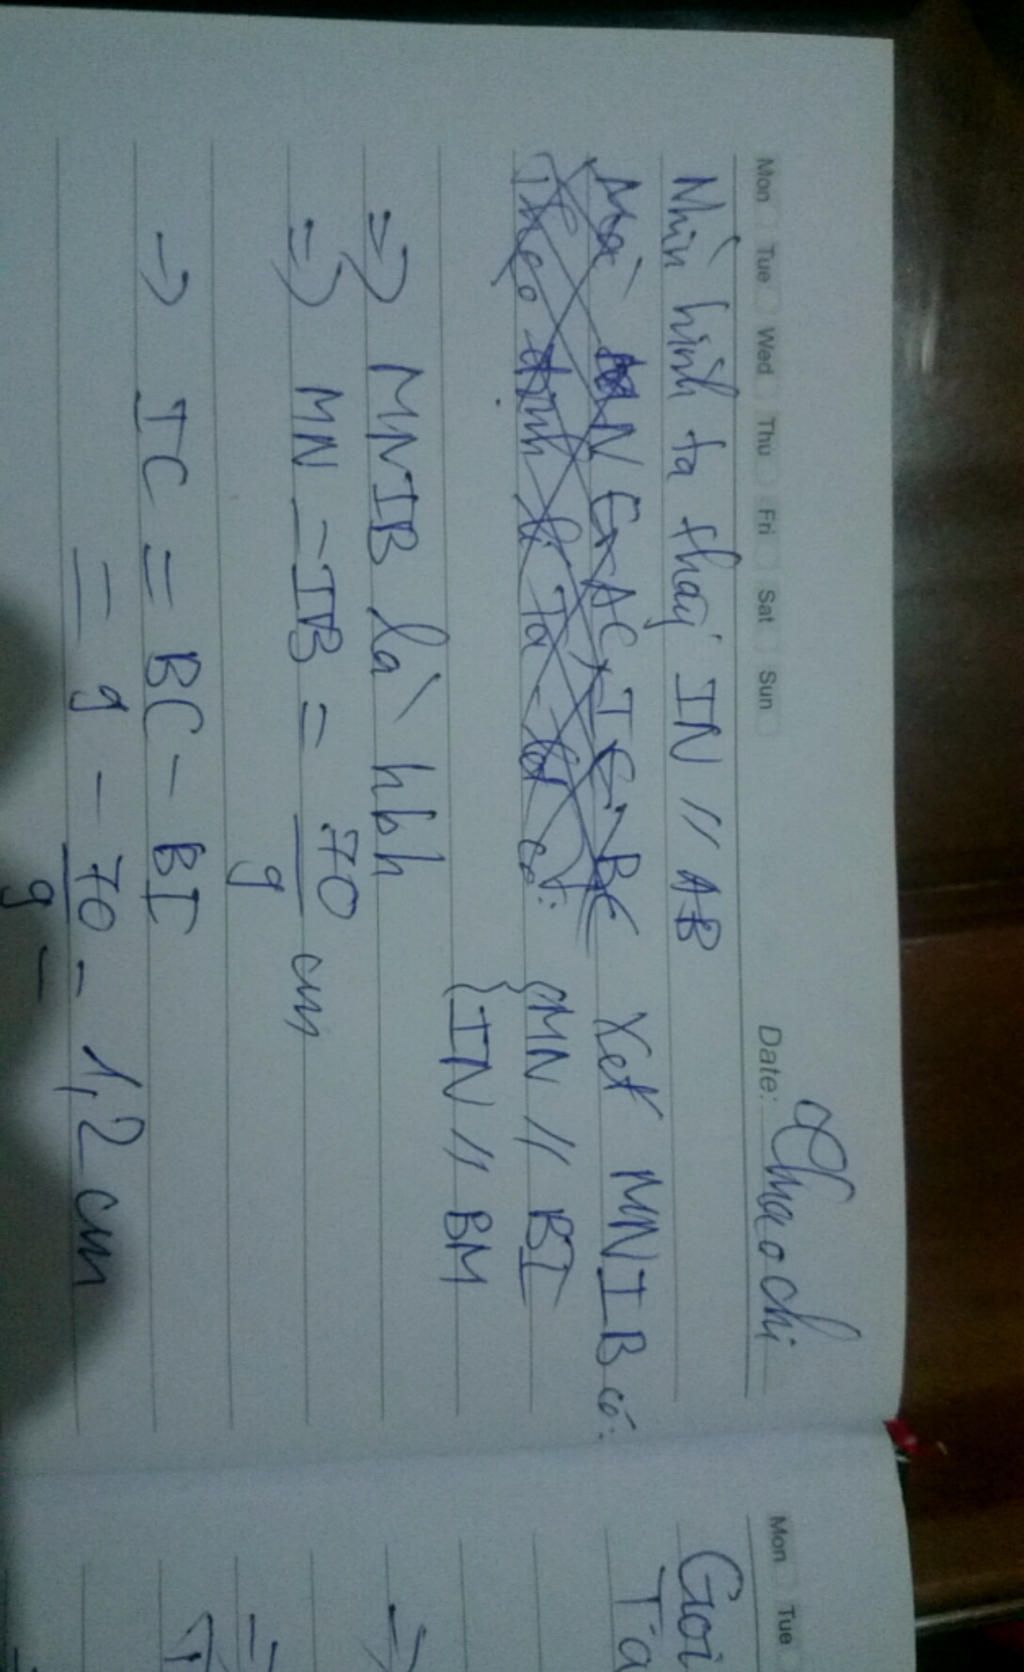 Mon Tue Wed Thu Fri Sat Sun Date: Chào chi
Nhìn hình ta thấy IN // AB
Mà N ∈ AC, I ∈ BC Xét MNIB có:
Theo định lí Ta-lét có: {MN // BI
{IN // BM
=> MNIB là hbh
=> MN = IB = 70/9 cm
-> IC = BC - BI
= 9 - 70/9 = 1,2 cm
Mon Tue
Gọi
Ta
=>
=